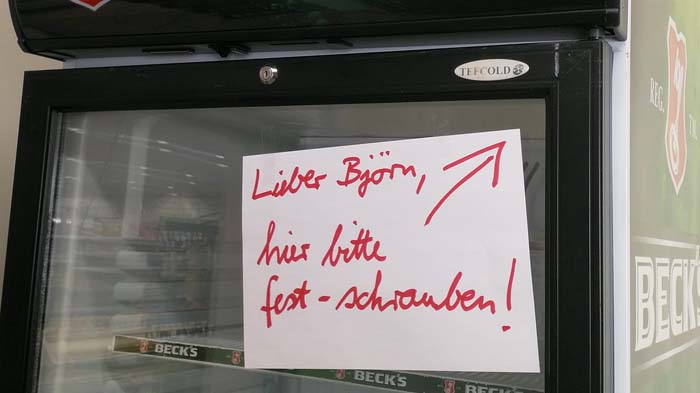 TEFCOLD
Lieber Björn,
hier bitte
fest-schrauben!
REG. TM
BECK'S
BECK'S
BECK'S
BECK'S